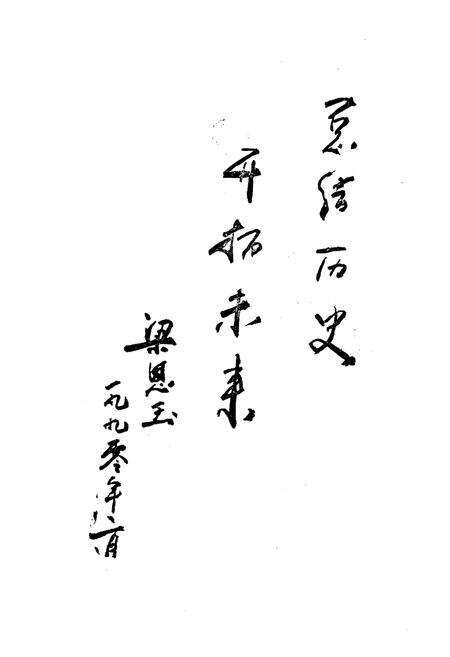 总结历史
开拓未来
梁恩玉
一九九零年六月